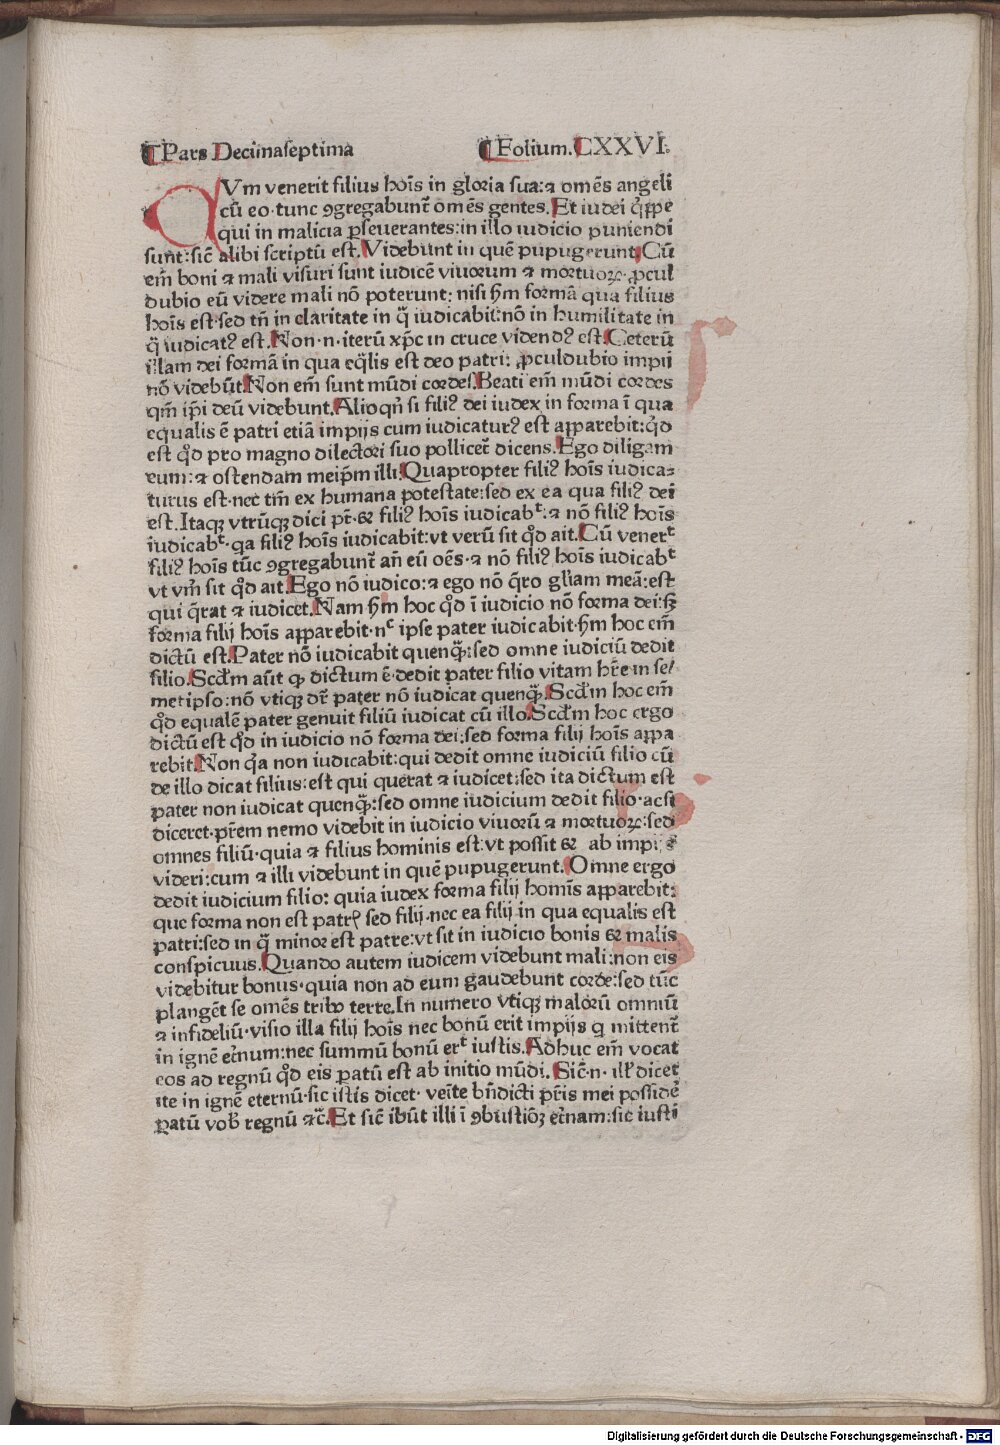 ¶Pars Decimaseptima ¶Folium.CXXVI.
CVm venerit filius hoĩs in gloria sua:⁊ omẽs angeli
cũ eo·tunc ꝯgregabunt̃ omẽs gentes.Et iudei q̃ꝓpe
qui in malicia ꝑseuerantes:in illo iudicio puniendi
sunt:sic̃ alibi scriptũ est.Videbunt in quẽ pupugerunt.Cũ
em̃ boni ⁊ mali visuri sunt iudicẽ viuorum ⁊ mortuoꝝ·ꝓcul
dubio eũ videre mali nõ poterunt: nisi ẜm formã qua filius
hoĩs est·sed tñ in claritate in q̃ iudicabit:nõ in humilitate in
q̃ iudicatꝰ est.Non·n·iterũ xp̃c in cruce videndꝰ est.Ceterũ
illam dei formã in qua eq̃lis est deo patri: ꝓculdubio impij
nõ videbũt.Non em̃ sunt mũdi cordes.Beati em̃ mũdi cordes
qm̃ ip̃i deũ videbunt.Alioqñ si filiꝰ dei iudex in forma ĩ qua
equalis ẽ patri etiã impijs cum iudicaturꝰ est apparebit:qð
est qð pro magno dilectori suo pollicet̃ dicens.Ego diligam
eum:⁊ ostendam meip̃m illi.Quapropter filiꝰ hoĩs iudica-
turus est·nec tm̃ ex humana potestate:sed ex ea qua filiꝰ dei
est.Itaqꝫ vtrũqꝫ dici pt̃·& filiꝰ hoĩs iudicabᵗ:⁊ nõ filiꝰ hoĩs
iudicabᵗ·qa filiꝰ hoĩs iudicabit:vt verũ sit qð ait.Cũ venerᵗ
filiꝰ hoĩs tũc ꝯgregabunt̃ añ eũ oẽs·⁊ nõ filiꝰ hoĩs iudicabᵗ
vt vm̃ sit qð ait.Ego nõ iudico:⁊ ego nõ q̃ro gl̃iam meã:est
qui q̃rat ⁊ iudicet.Nam ẜm hoc qð ĩ iudicio nõ forma dei:sꝫ
forma filij hoĩs apparebit·nᶜ ipse pater iudicabit·ẜm hoc em̃
dictũ est.Pater nõ iudicabit quenq̃:sed omne iudiciũ dedit
filio.Scd̃m aũt ꝙ dictum ẽ·dedit pater filio vitam hr̃e in se/
metipso:nõ vtiqꝫ dr̃ pater nõ iudicat quenq̃.Scd̃m hoc em̃
qð equalẽ pater genuit filiũ iudicat cũ illo.Scd̃m hoc ergo
dictũ est qð in iudicio nõ forma dei:sed forma filij hoĩs appa
rebit.Non q̃a non iudicabit:qui dedit omne iudiciũ filio cũ
de illo dicat filius:est qui querat ⁊ iudicet:sed ita dictum est
pater non iudicat quenq̃:sed omne iudicium dedit filio·acsi
diceret·pr̃em nemo videbit in iudicio viuorũ ⁊ mortuoꝝ:sed
omnes filiũ·quia ⁊ filius hominis est:vt possit & ab impijs
videri:cum ⁊ illi videbunt in quẽ pupugerunt.Omne ergo
dedit iudicium filio: quia iudex forma filij homĩs apparebit:
que forma non est patrꝭ sed filij·nec ea filij in qua equalis est
patri:sed in q̃ minor est patre:vt sit in iudicio bonis & malis
conspicuus.Quando autem iudicem videbunt mali:non eis
videbitur bonus·quia non ad eum gaudebunt corde:sed tũc
plangẽt se omẽs tribꝰ terre.In numero vtiqꝫ malorũ omniũ
⁊ infideliũ·visio illa filij hoĩs nec bonũ erit impijs q mittent̃
in ignẽ et̃num:nec summũ bonũ erᵗ iustis.Adhuc em̃ vocat
eos ad regnũ qð eis ꝑatũ est ab initio mũdi.Sic̃·n·illꝭ dicet
ite in ignẽ eternũ·sic istis dicet·ven̂te bñdicti pr̃is mei possidẽ
ꝑatũ vob̃ regnũ ⁊c̃.Et sic̃ ibũt illi ĩ ꝯbustiõꝫ et̃nam:sic iusti
Digitalisierung gefördert durch die Deutsche Forschungsgemeinschaft - DFG